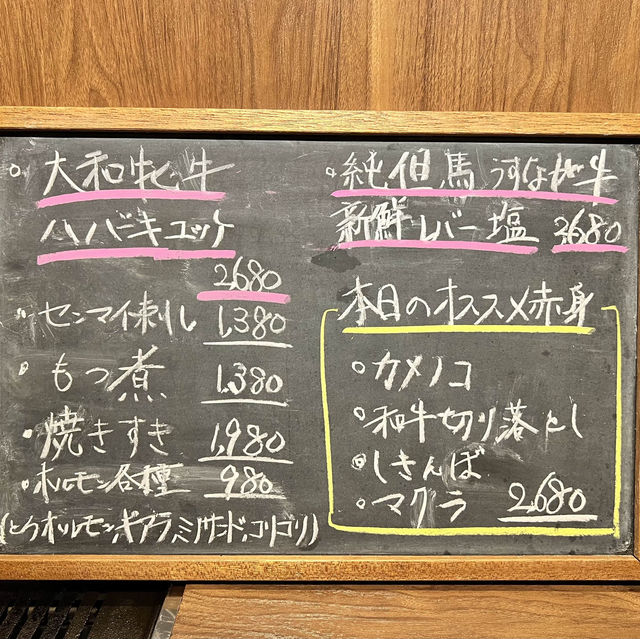 大和牝牛
ハバーキユッケ
2680
センマイ刺し 1,380
もつ煮 1,380
焼きすき 1,980
ホルモン各種 980
(とろホルモン,ギアラ,ミノサンド,コリコリ)
純但馬 牛
新鮮レバー塩 3680
本日のオススメ赤身
カメノコ
和牛切り落とし
しきんぼ
マクラ 2680